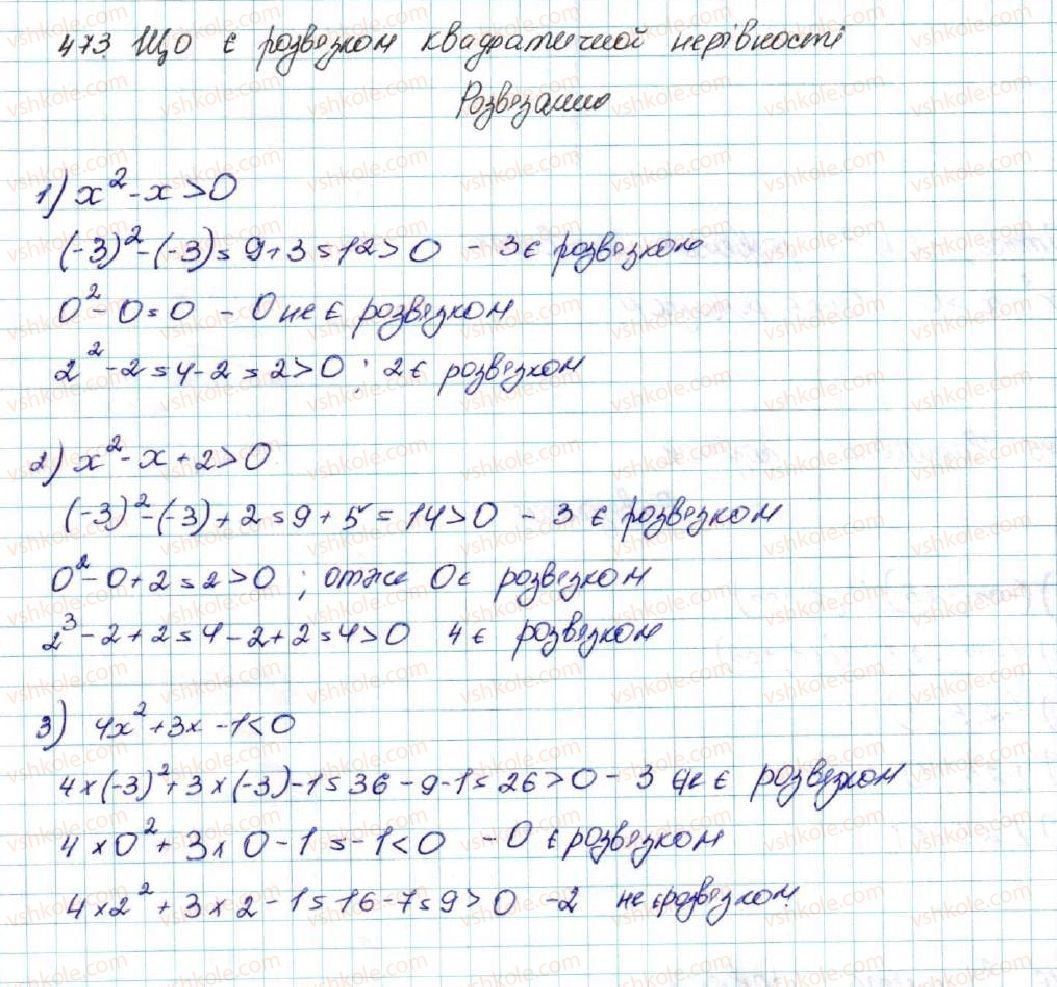 473. Що є розвязком квадратичної нерівності
Розвязання
1) x² - x > 0
(-3)² - (-3) = 9 + 3 = 12 > 0 - 3 є розвязком
0² - 0 = 0 - 0 не є розвязком
2² - 2 = 4 - 2 = 2 > 0 ; 2 є розвязком
2) x² - x + 2 > 0
(-3)² - (-3) + 2 = 9 + 5 = 14 > 0 - 3 є розвязком
0² - 0 + 2 = 2 > 0 ; отже 0 є розвязком
2³ - 2 + 2 = 4 - 2 + 2 = 4 > 0 4 є розвязком
3) 4x² + 3x - 1 < 0
4 × (-3)² + 3 × (-3) - 1 = 36 - 9 - 1 = 26 > 0 - 3 не є розвязком
4 × 0² + 3 × 0 - 1 = -1 < 0 - 0 є розвязком
4 × 2² + 3 × 2 - 1 = 16 - 7 = 9 > 0 - 2 не є розвязком